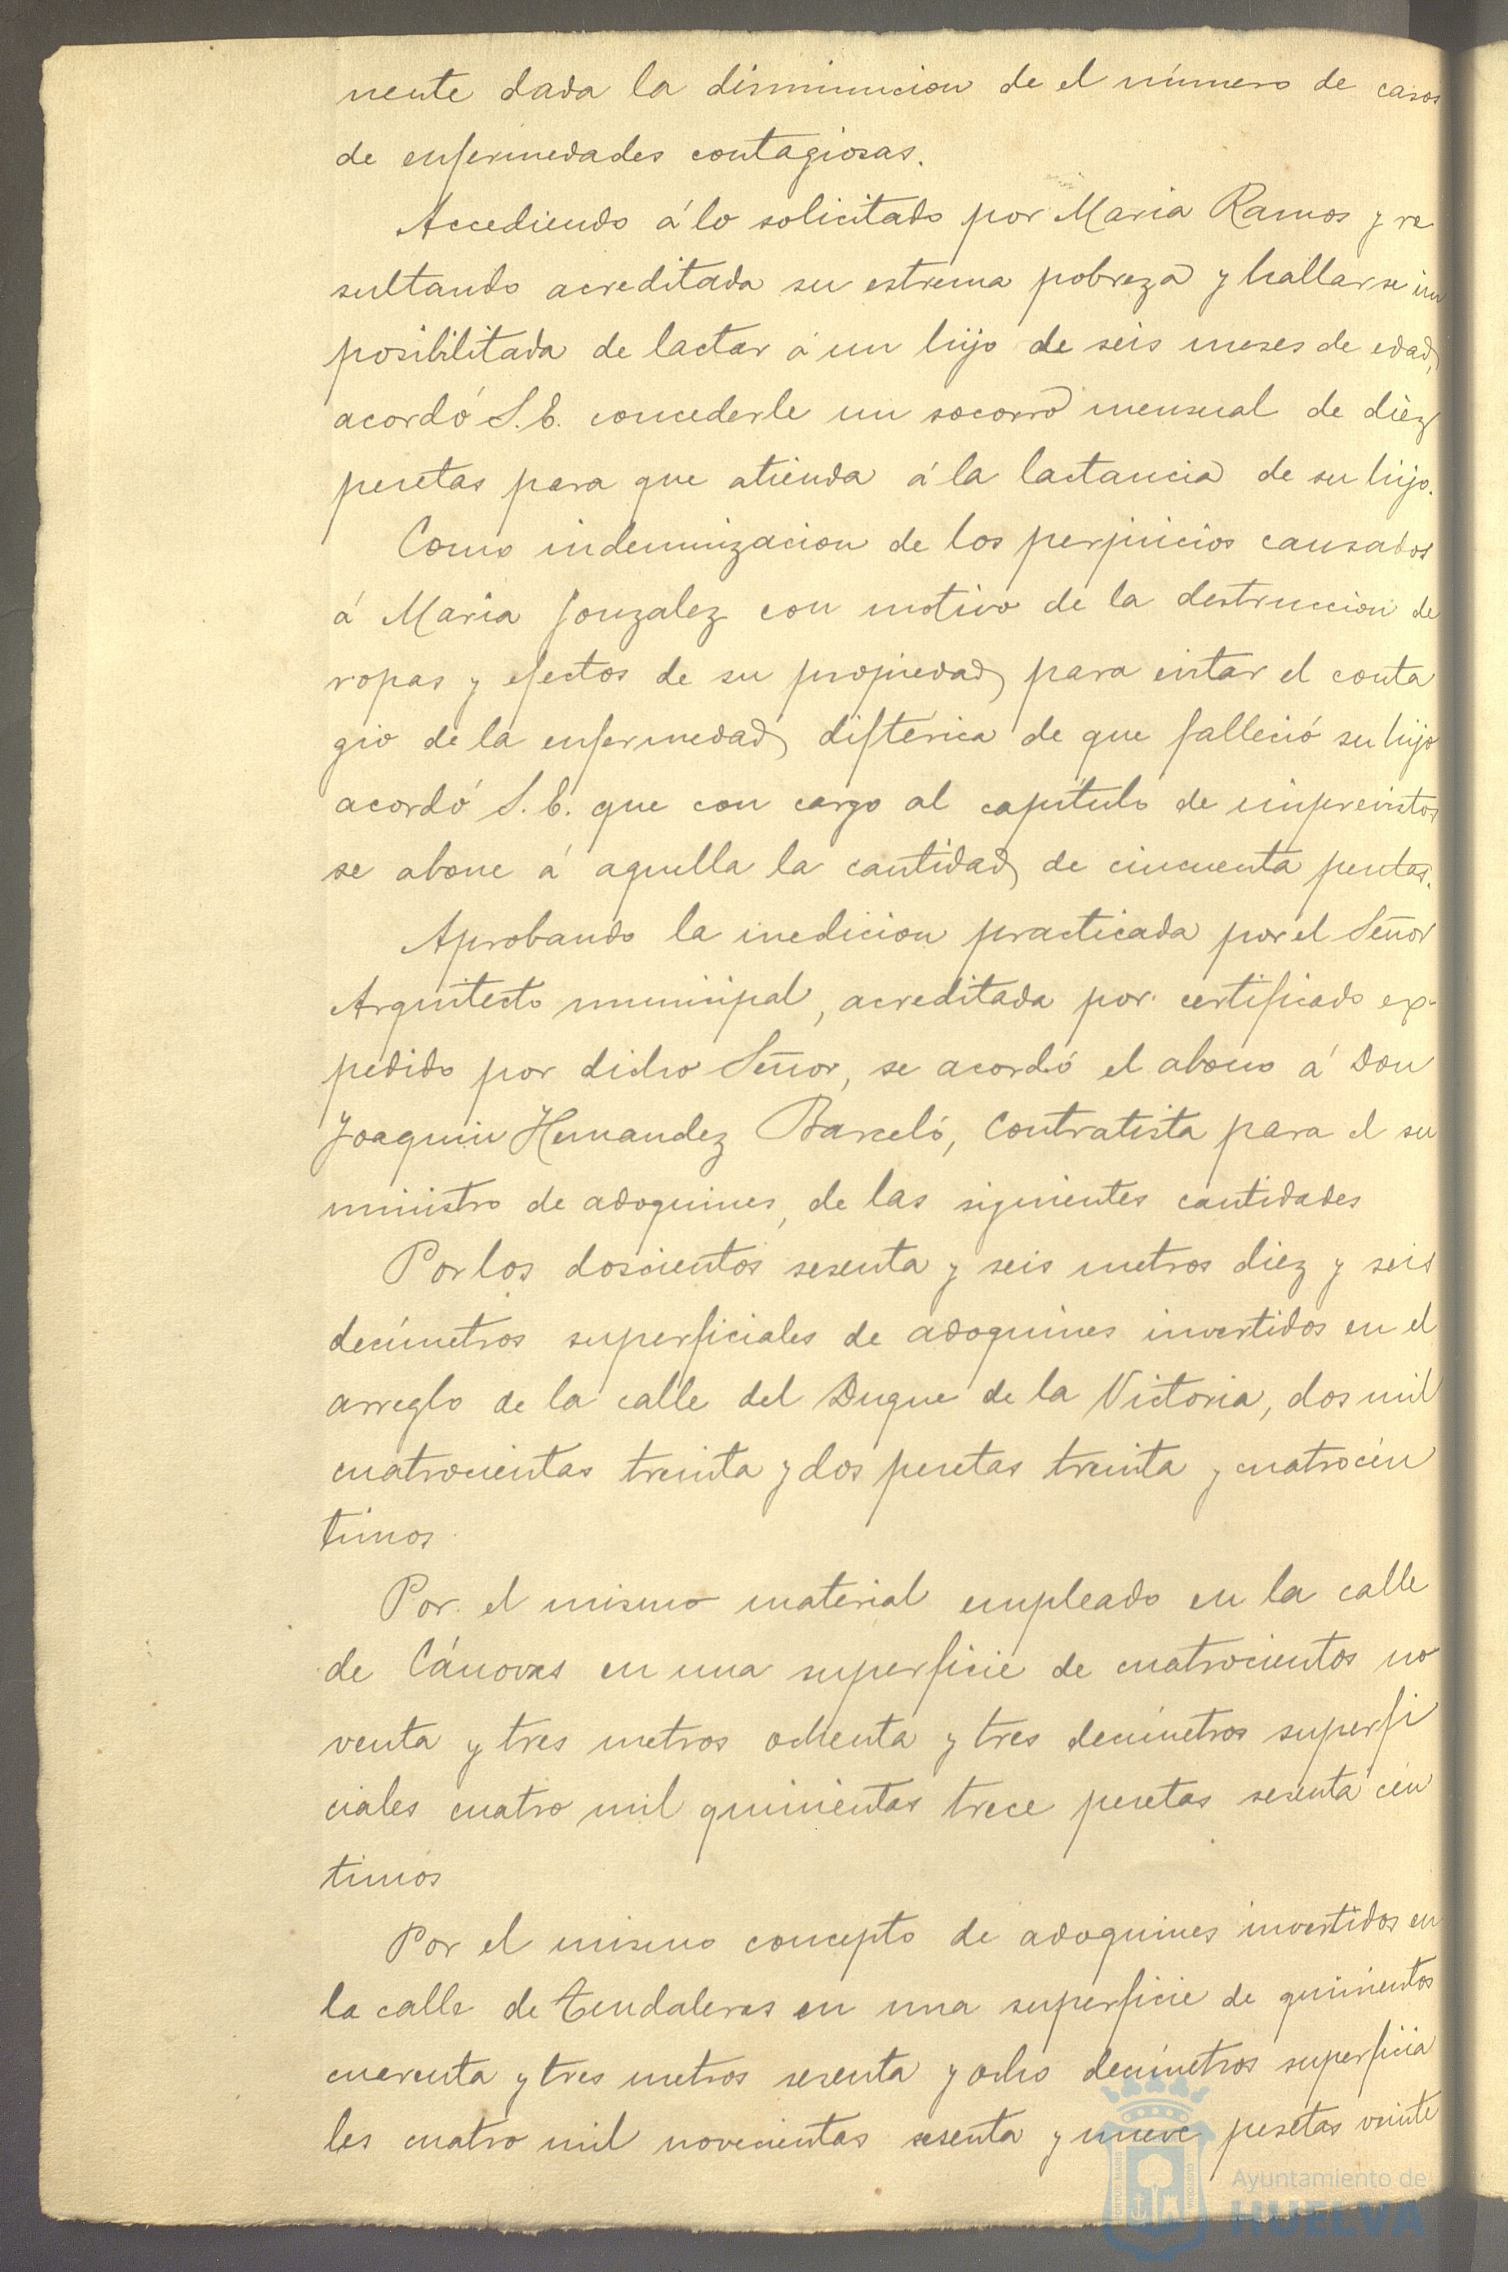 nente dada la disminucion de el número de casos
de enfermedades contagiosas.
Accediendo á lo solicitado por Maria Ramos y re
sultando acreditada su estrema pobreza y hallarse im
posibilitada de lactar á un hijo de seis meses de edad,
acordó S.E. concederle un socorro mensual de diez
pesetas para que atienda á la lactancia de su hijo.
Como indemnizacion de los perjuicios causados
á Maria Gonzalez con motivo de la destruccion de
ropas y efectos de su propiedad para evitar el conta
gio de la enfermedad diftérica de que falleció su hijo
acordó S.E. que con cargo al capítulo de imprevistos
se abone á aquella la cantidad de cincuenta pesetas.
Aprobando la medicion practicada por el Señor
Arquitecto municipal, acreditada por certificado ex-
pedido por dicho Señor, se acordó el abono á Don
Joaquin Hernandez Barceló, Contratista para el su
ministro de adoquines, de las siguientes cantidades
Por los doscientos sesenta y seis metros diez y seis
decímetros superficiales de adoquines invertidos en el
arreglo de la calle del Duque de la Victoria, dos mil
cuatrocientas treinta y dos pesetas treinta y cuatro cén
timos
Por el mismo material empleado en la calle
de Cánovas en una superficie de cuatrocientos no
venta y tres metros ochenta y tres decímetros superfi
ciales cuatro mil quinientas trece pesetas sesenta cén
timos
Por el mismo concepto de adoquines invertidos en
la calle de Tendaleras en una superficie de quinientos
cuarenta y tres metros sesenta y ocho decímetros superficia
les cuatro mil novecientas sesenta y nueve pesetas veinte
Ayuntamiento de
HUELVA